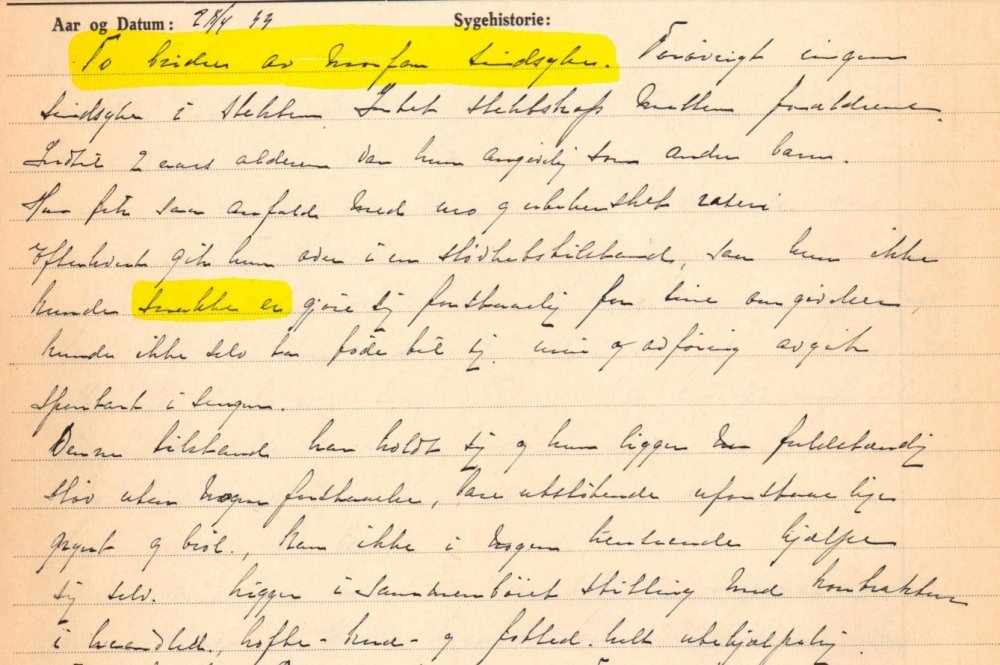 Aar og Datum: 28/4 33 Sygehistorie:
To brødre av morfar sindsyke. Forøvrigt ingen
sindsyke i slekten. Intet slektskap mellem forældrene.
Indtil 2 aars alderen var hun angivelig som andre barn.
Hun fik saa anfald med uro og ubehersket raseri
Efterhvert gik hun over i en sløvhetstilstand, saa hun ikke
kunde snakke el gjøre sig forstaaelig for sine omgivelser,
kunde ikke selv ta føde til sig. urin og avføring avgik
spontant i sengen.
Denne tilstand har holdt sig og hun ligger nu fuldstændig
sløv uten nogen forstaaelse, bare utstøtende uforstaaelige
grynt og brøl., kan ikke i nogen henseende hjælpe
sig selv. Ligger i sammenbøiet stilling med kontrakturer
i haandled, hofte- knæ- og fotled. helt ubehjælpelig.